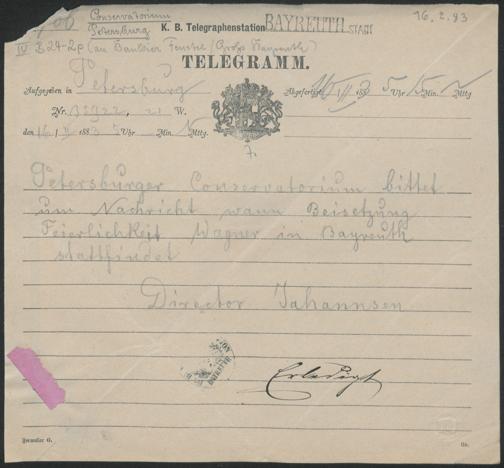 Conservatorium
Petersburg
16.2.83
K. B. Telegraphenstation BAYREUTH STADT
IV B 24-2p (an Bankier Feustel / Groß Bayreuth)
TELEGRAMM.
Aufgegeben in Petersburg
Abgefertigt 5 Uhr 15 Min. Mttg
Nr. 21 W.
den 16/II 1883 5 Uhr Min. N Mttg.
Petersburger Conservatorium bittet
um Nachricht wann Beisetzung
Feierlichkeit Wagner in Bayreuth
stattfindet
Director Johannsen
Erledigt
Formular G.